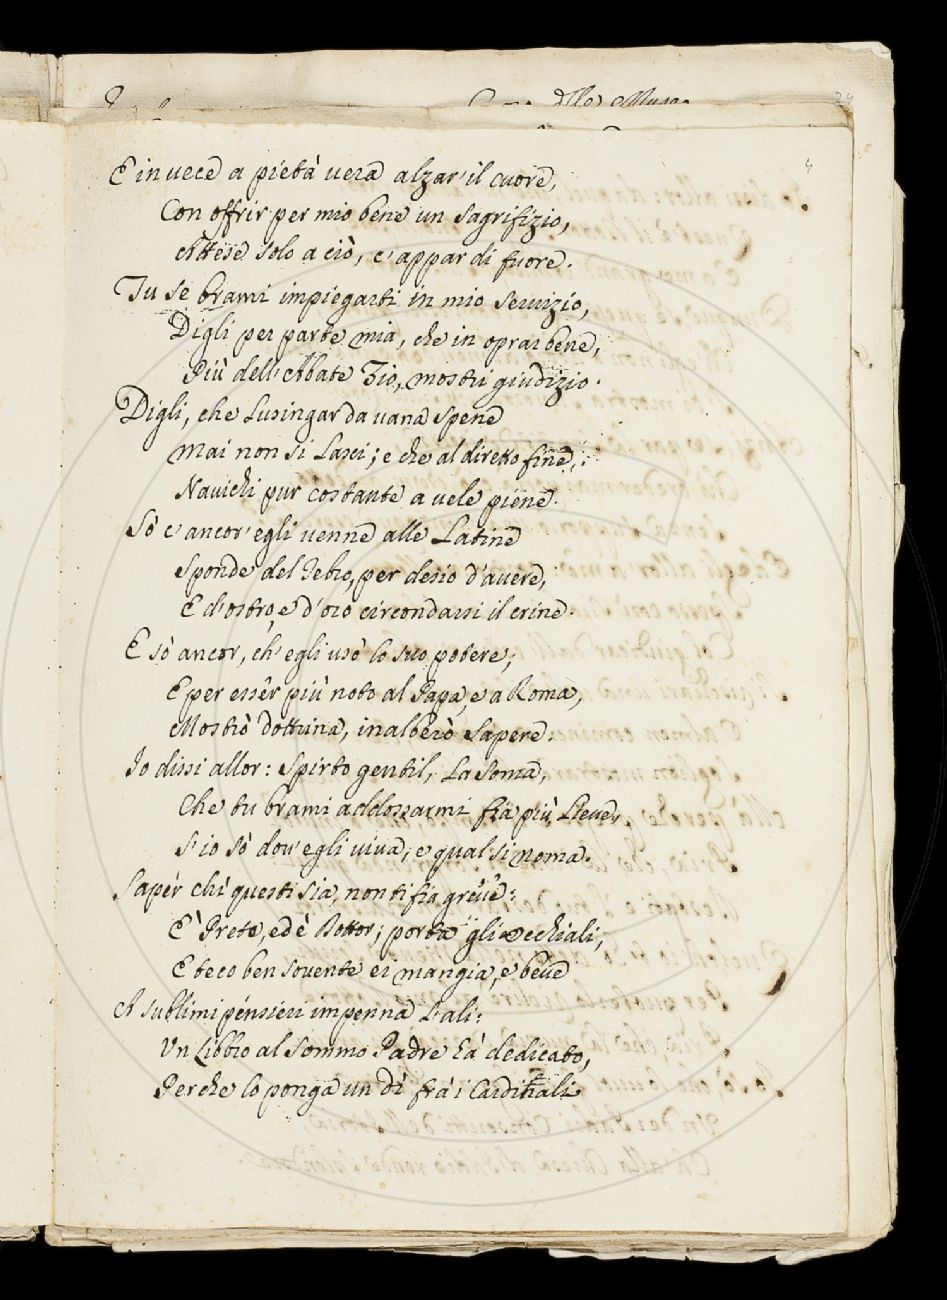 4
E in vece a pietà vera alzar' il cuore,
Con offrir per mio bene un sagrifizio,
Attese solo a ciò, c'appar di fuore.
Tu se brami impiegarti in mio servizio,
Digli per parte mia, che in oprar bene,
Più dell'Abate Zio, mostri giudizio.
Digli, che Lusingar da vana spene
Mai non si Lasci; e che al diretto fine,
Navichi pur costante a vele piene.
Sò c'ancor'egli venne alle Latine
Sponde del Tebro, per desio d'avere,
E d'ostro, e d'oro circondarsi il crine.
E sò ancor, ch'egli usò lo suo potere;
E per esser più noto al Papa, e a Roma,
Mostrò dottrina, inalberò sapere.
Io dissi allor: Spirto gentil, La soma,
Che tu brami addossarmi fia più Lieve,
S'io sò dov'egli viva, e qual si noma.
Sapér chi questi sia, non ti fia greve:
E' Prete, ed è Rettor; porta gli occhiali,
E teco ben sovente ei mangia, e beve
A sublimi pensieri impenna L'ali:
Un Libbro al sommo Padre hà dedicato,
Perche lo ponga un dì frà i Cardinali